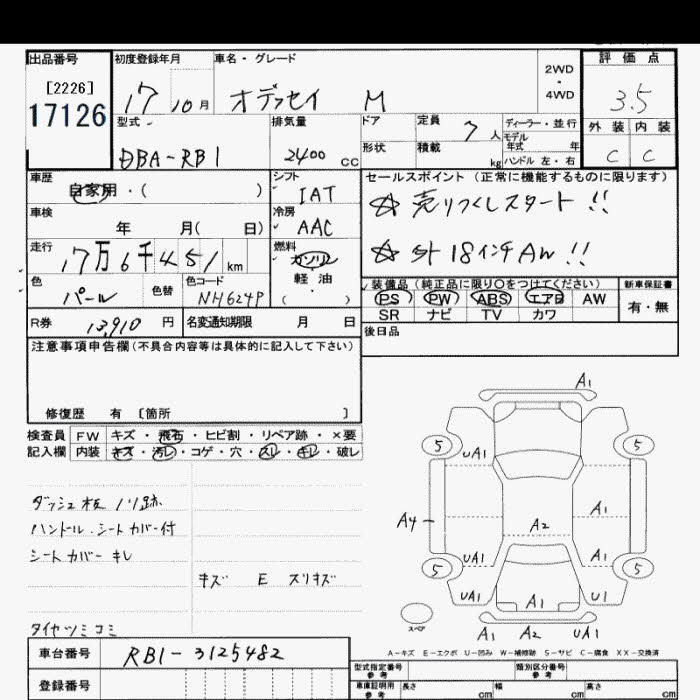 出品番号 初度登録年月 車名・グレード 2WD・4WD 評価点
[2226]
17126 17 10月 オデッセイ M 3.5
型式 排気量 ドア 定員 7人 ディーラー・並行 外装 内装
モデル年式 年
DBA-RB1 2400cc 形状 積載 kg ハンドル 左・右 C C
車歴 シフト セールスポイント(正常に機能するものに限ります)
自家用・( ) IAT ☆ 売りつくしスタート!!
車検 冷房
年 月( 日) AAC
走行 燃料 ☆ 外 18インチAW!!
17万6千451km ガソリン
色 色替 色コード 軽油 装備品(純正品に限り○をつけてください) 新車保証書
パール NH624P ( ) PS PW ABS エアB AW 有・無
SR ナビ TV カワ
R券 13,910円 名変通知期限 月 日 後日品
注意事項申告欄(不具合内容等は具体的に記入して下さい)
修復歴 有 [箇所 ]
検査員 FW キズ・飛石・ヒビ割・リペア跡・×要
記入欄 内装 キズ・汚レ・コゲ・穴・スレ・キレ・破レ
ダッシュ板 ノリ跡
ハンドル.シートカバー付
シートカバーキレ
キズ E スリキズ
タイヤツミコミ
A1
5 5
UA1
A4 A2 A1
UA1 A1
5 5
UA1 A1 U1
スペア A1 A2 UA1
A-キズ E-エクボ U-凹み W-補修跡 S-サビ C-腐食 XX-交換済
車台番号 RB1-3125482
型式指定番号 参考 類別区分番号 参考
登録番号 車庫証明用 参考 長さ cm 幅 cm 高さ cm